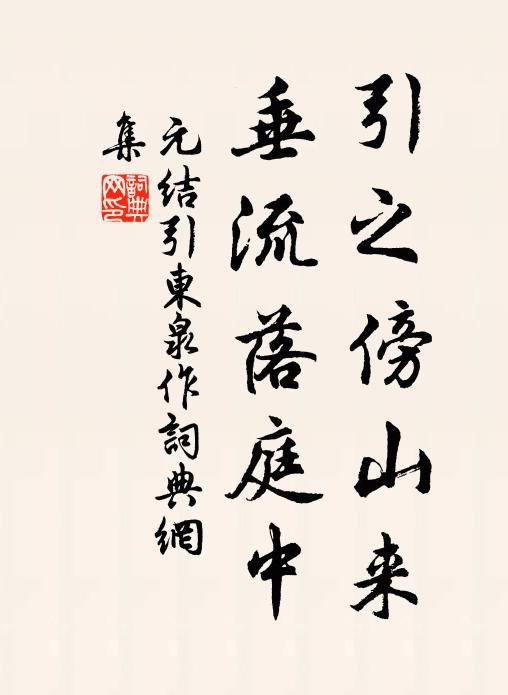 引之傍山来
垂流落庭中
元结引東泉作詞典網
集
詞典
网印